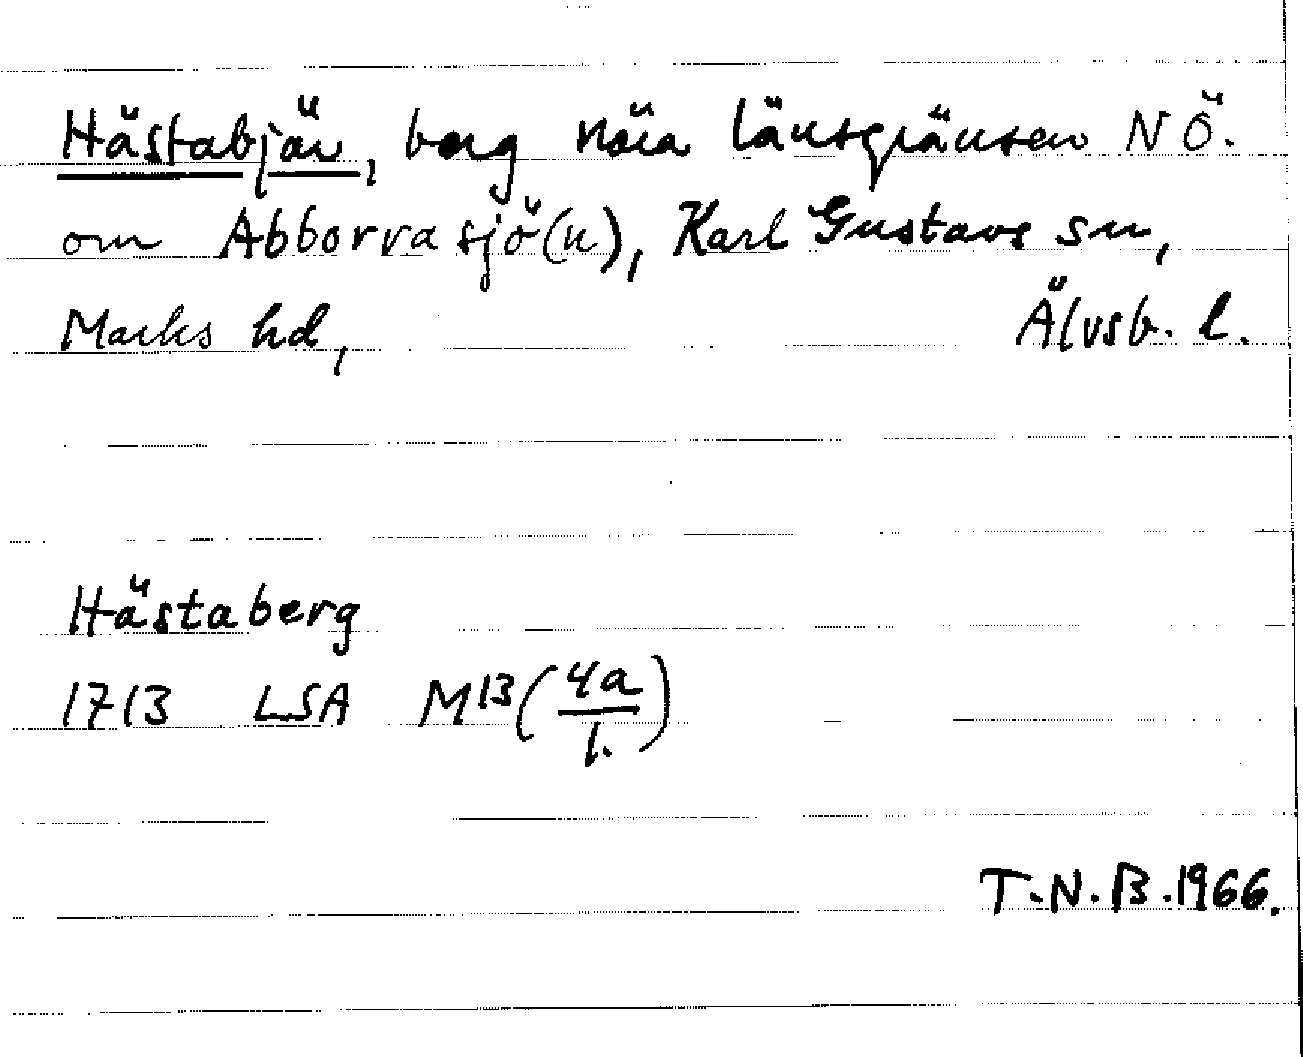 Hästabjär, berg nära länsgränsen NÖ.
om Abborrasjö(n), Karl Gustavs sn,
Marks hd, Älvsb. l.
Hästaberg
1713 LSA M13(4a/1.)
T.N.B.1966.